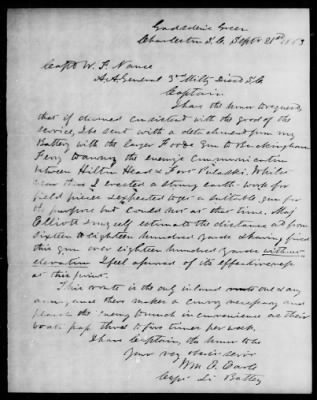 Charleston S.C. Sept 21st 1863
Capt W. F. Nance
A A General 3rd Milty Dist S.C.
Captain
I have the honor to request
that if deemed consistent with the good of the
service, I be sent with a detachment from my
Battery with the larger Gun to Buckingham
Ferry to annoy the enemy's communication
between Hilton Head & Fort Pulaski. While
I erected a strong earth work for
field pieces & expected to get a suitable gun for
purpose but could not at that time. Maj
Elliott & myself estimate the distance at from
sixteen to eighteen hundred yards & having fired
this gun over eighteen hundred yards without
elevation I feel assured of its effectiveness
at this point.
This route is the only inland route out of any
and makes a convoy necessary and
the enemy much inconvenience as their
boats pass three to five times per week.
I have Captain, the honor to be
your very obdt servt
Wm
Capt Lt Battery